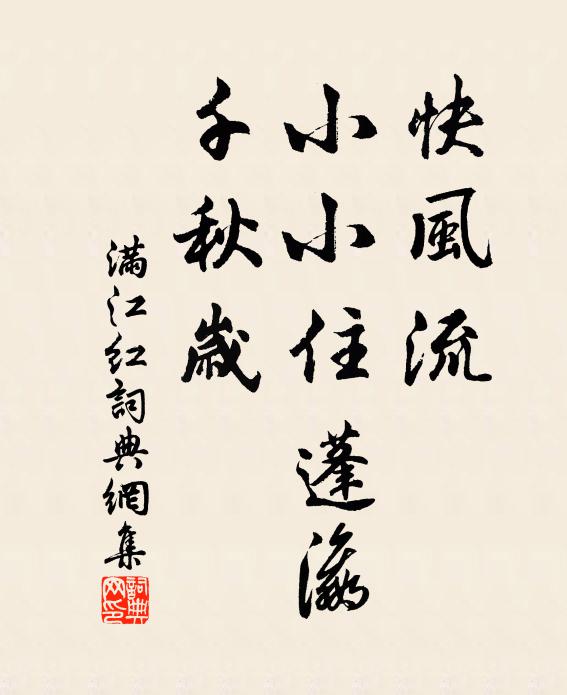 快風流
小小住蓬瀛
千秋歲
滿江紅詞典網集
詞典網印